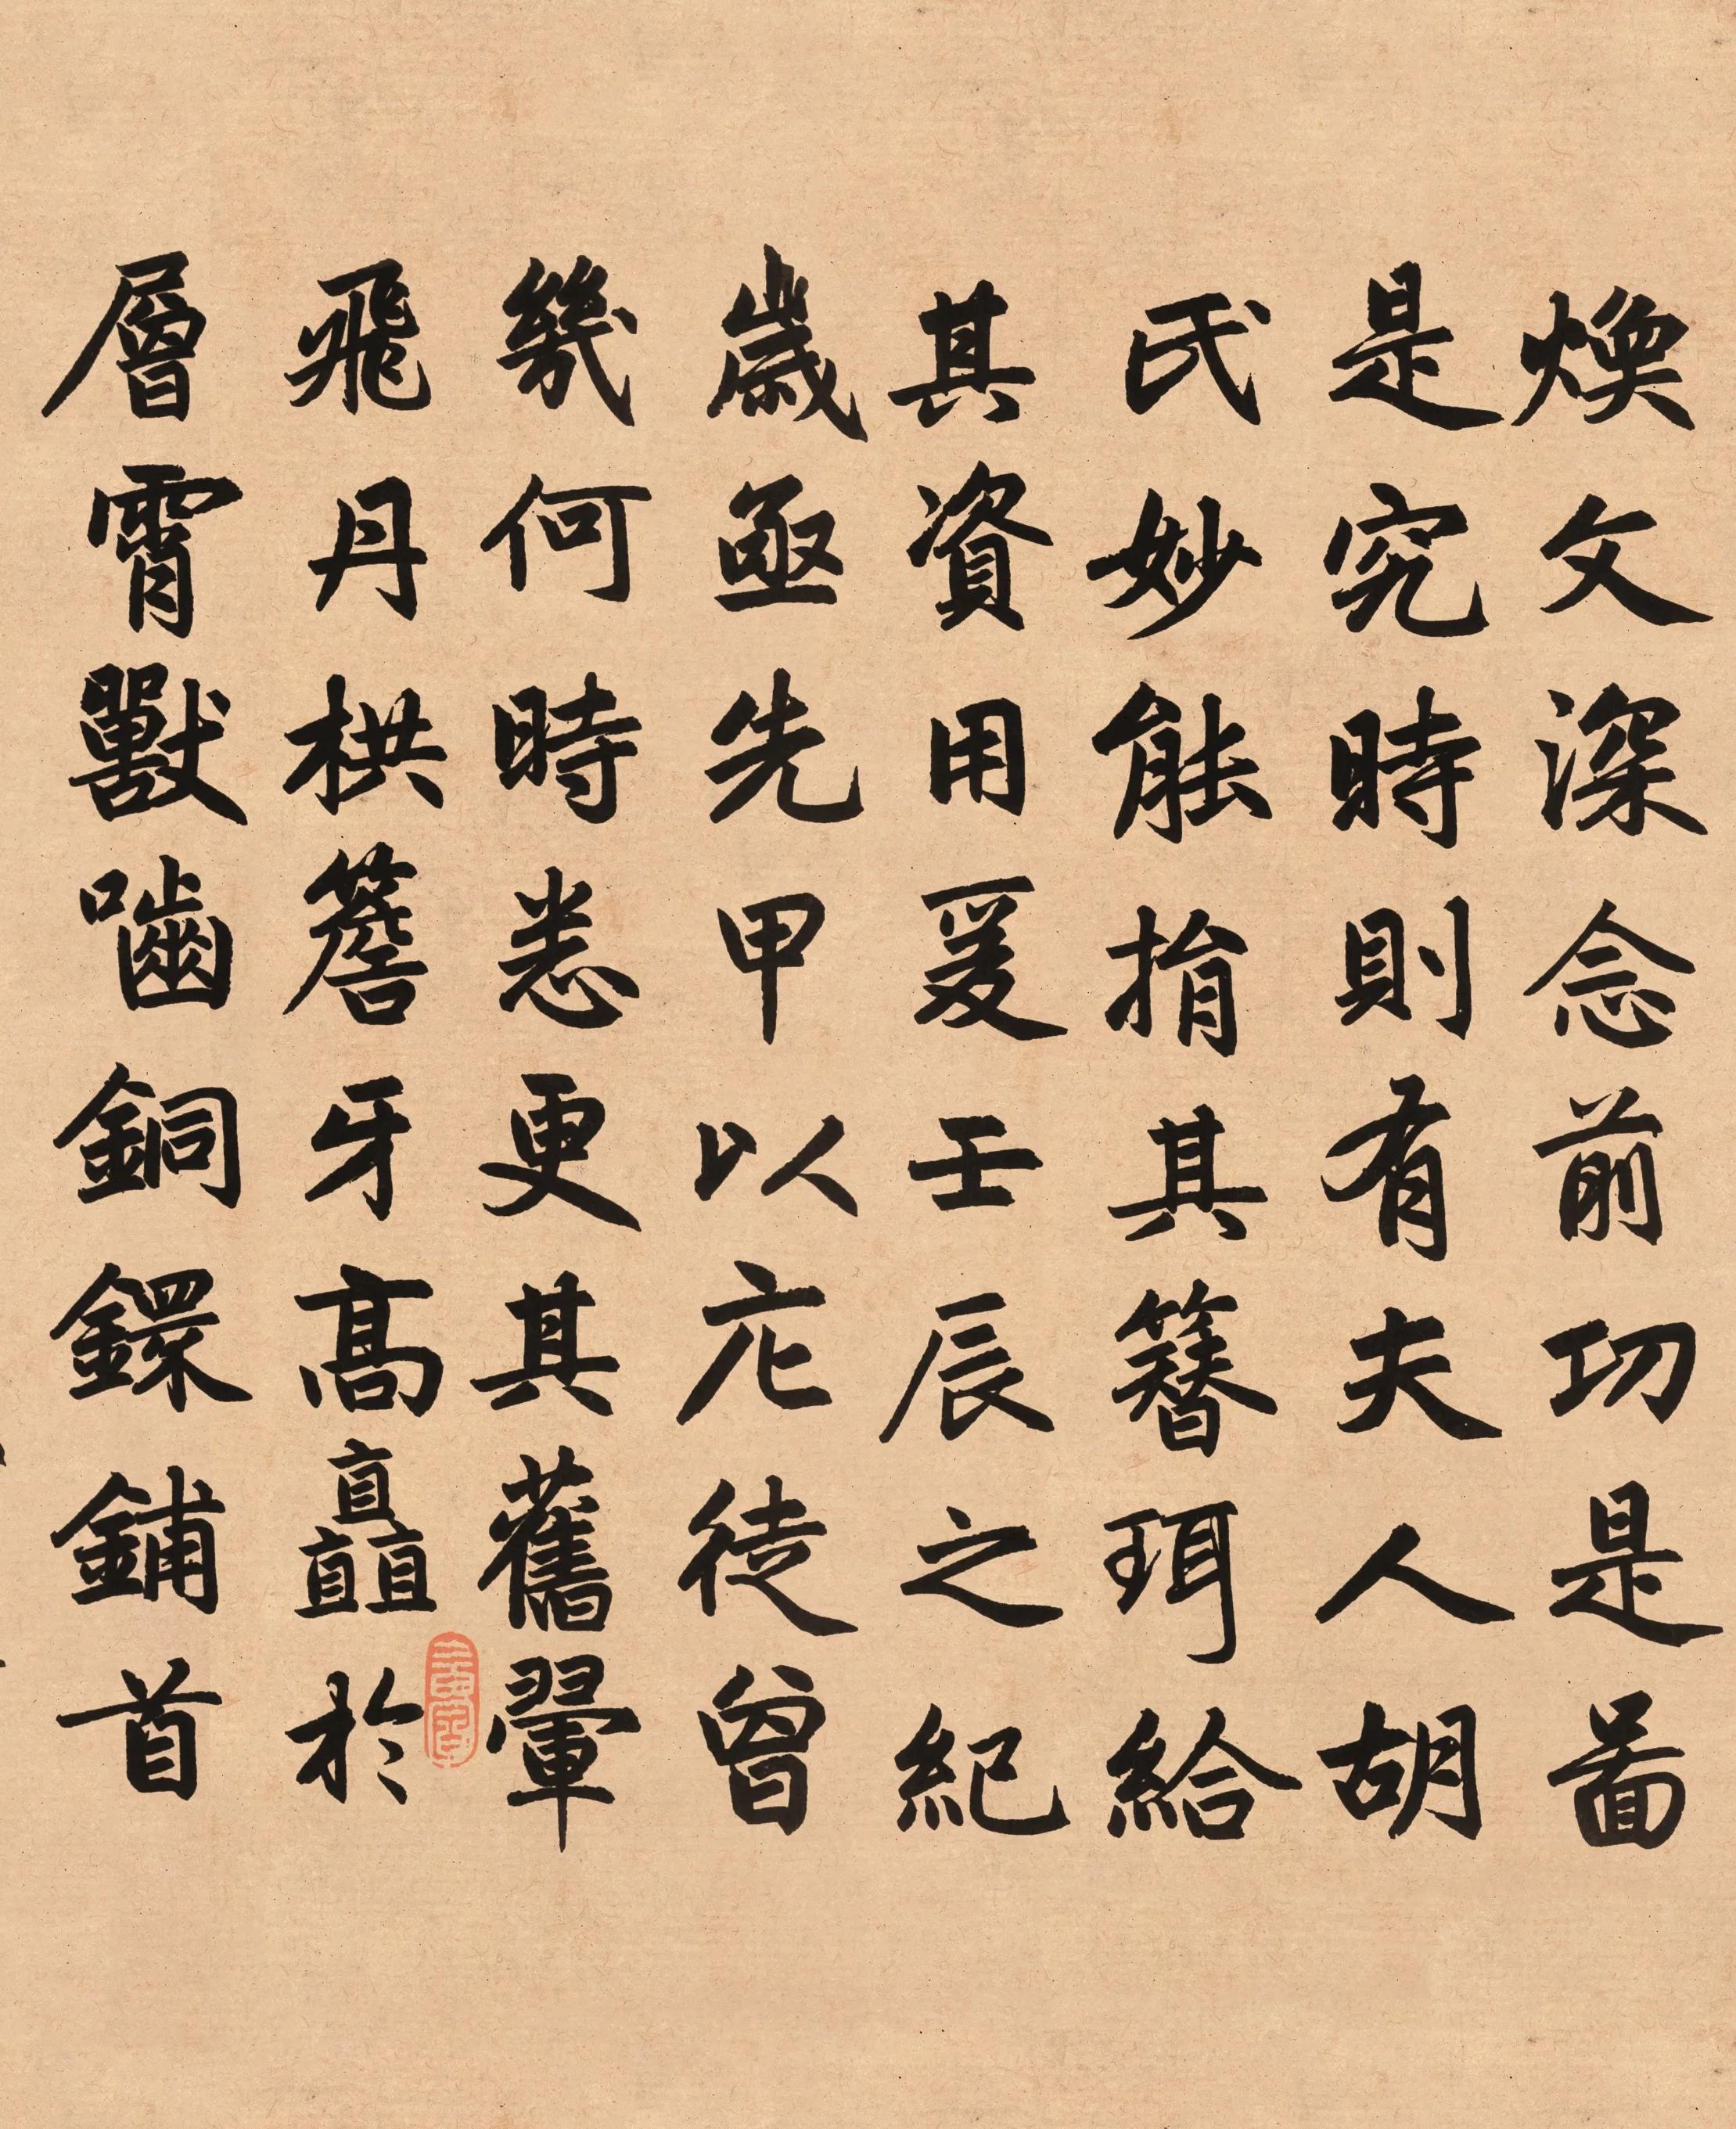 煥文深念前功是啚
是究時則有夫人胡
氏妙能捐其簪珥給
其資用爰壬辰之紀
歲亟先甲以庀徒曾
幾何時悉更其舊翬
飛丹栱簷牙高矗於
層霄獸嚙銅鐶鋪首